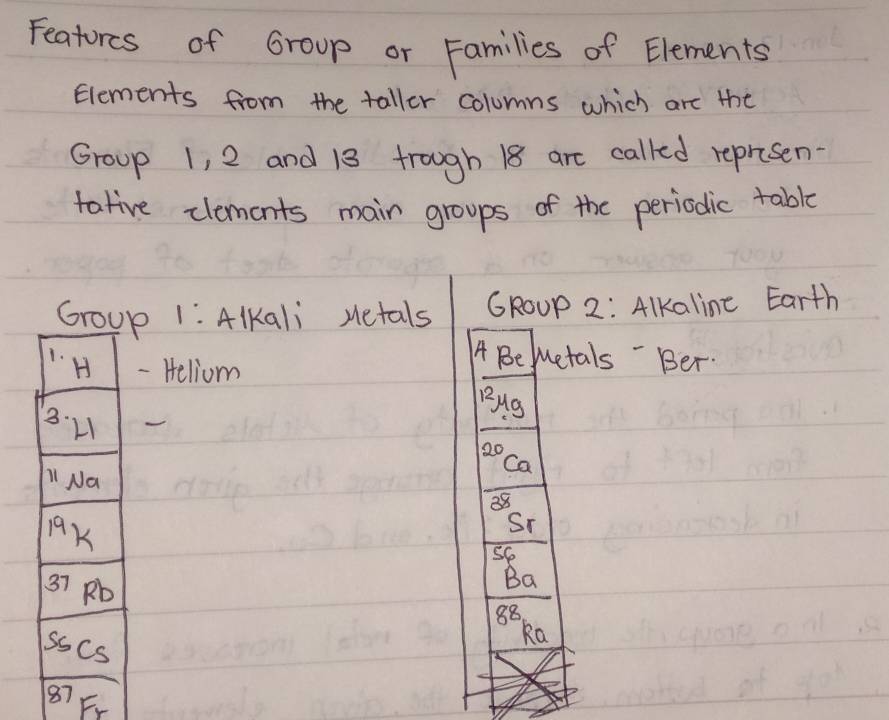 Features of Group or Families of Elements
Elements from the taller columns which are the
Group 1, 2 and 13 trough 18 are called represen-
tative elements main groups of the periodic table
Group 1: Alkali Metals
1. H - Helium
3. LI -
11 Na
19 K
37 Rb
55 Cs
87 Fr
GROUP 2: Alkaline Earth
4 Be Metals - Ber.
12 Mg
20 Ca
38 Sr
56 Ba
88 Ra